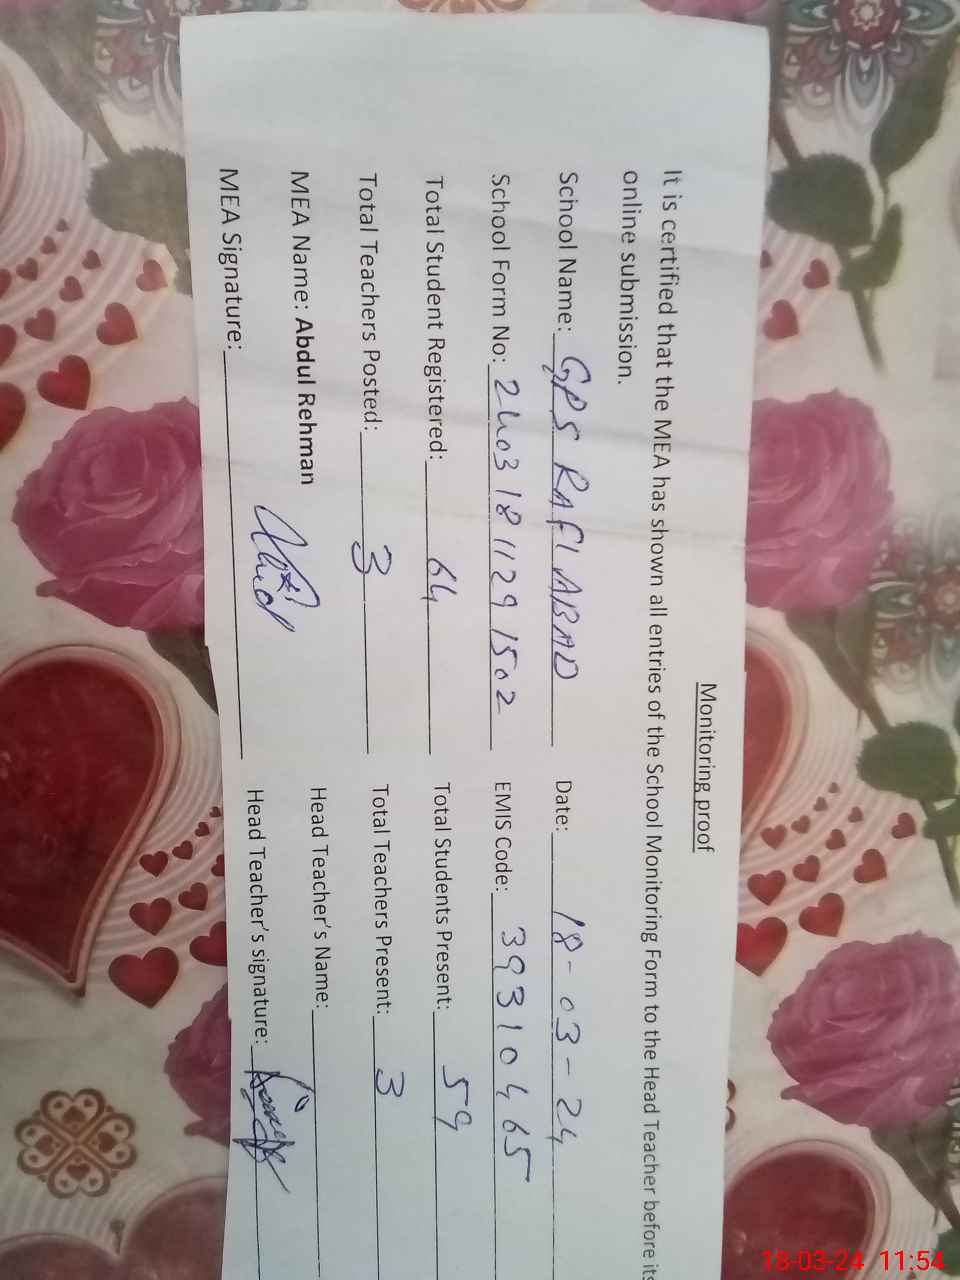 Monitoring proof
It is certified that the MEA has shown all entries of the School Monitoring Form to the Head Teacher before its
online submission.
School Name: GPS RAFI ABAD Date: 18-03-24
School Form No: 24031811291502 EMIS Code: 39310465
Total Student Registered: 64 Total Students Present: 59
Total Teachers Posted: 3 Total Teachers Present: 3
MEA Name: Abdul Rehman Head Teacher's Name:
MEA Signature: Head Teacher's signature:
18-03-24 11:54